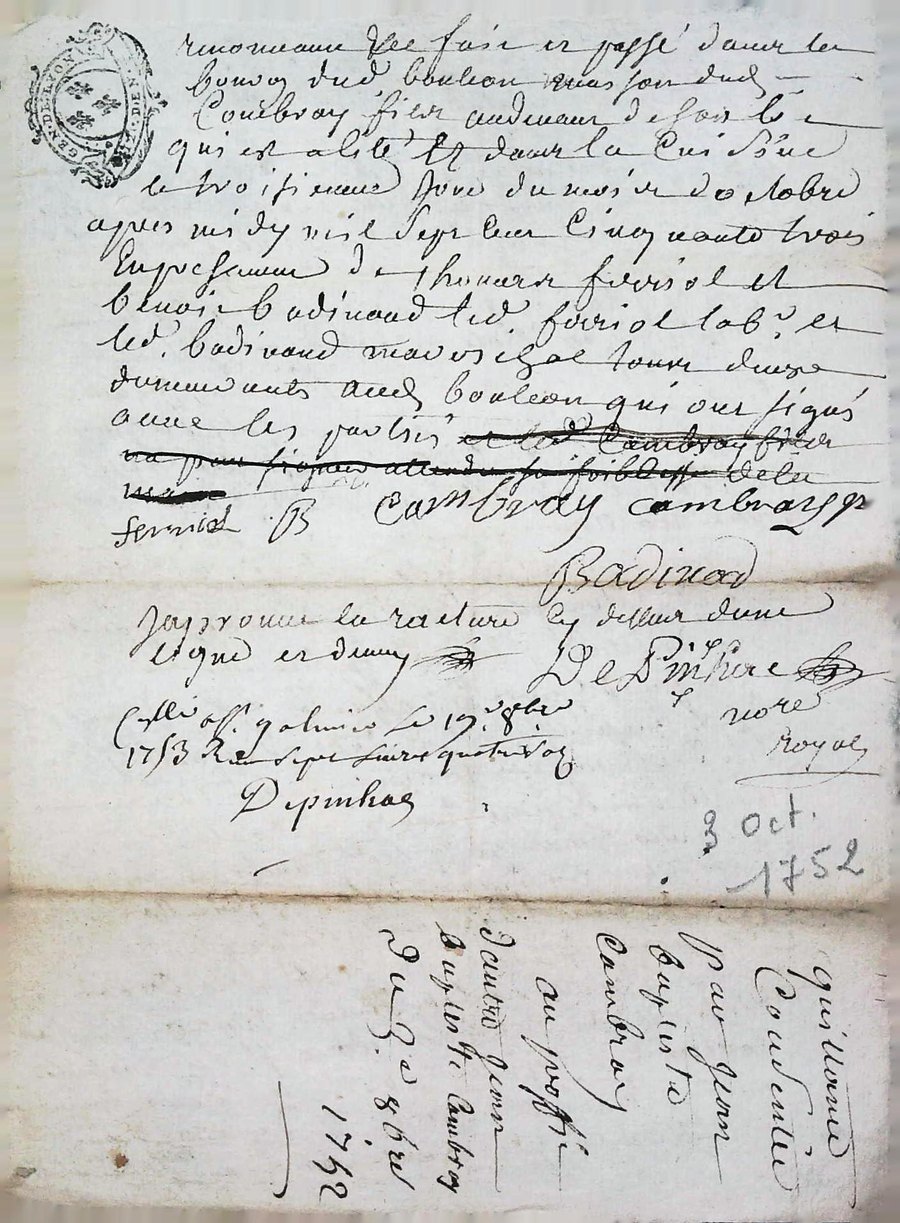 GEN. DE LYON
renonceant &ce fait et passé dans le
bourg dud. bouleon maison dud.
Combray fier
qui est alité et dans la Cuisine
le troisieme Jour du mois doctobre
apres midy mil Sept Cent Cinquante trois
En presence de thomas ferriol et
benoit badinand led. ferriol labr. et
led. badinand mareschal tous deux
demeurants aud. bouleon qui ont signés
avec les parties et led. Combray fier
na peu signer attendu sa foiblesse de la
main
ferriol B Cambray cambray
Badinad
Japrouve la racture cy dessus dune
ligne et demy
DePinhac
nore
royal
Collé aff. galmier le 19e 8bre
1753 R sept livres quatre sols
Depinhac
3 Oct.
1752
quittance
Concentée
par jean
baptiste
Cambray
au proffit
dautre jean
baptiste Cambray
du 3e 8bre
1752